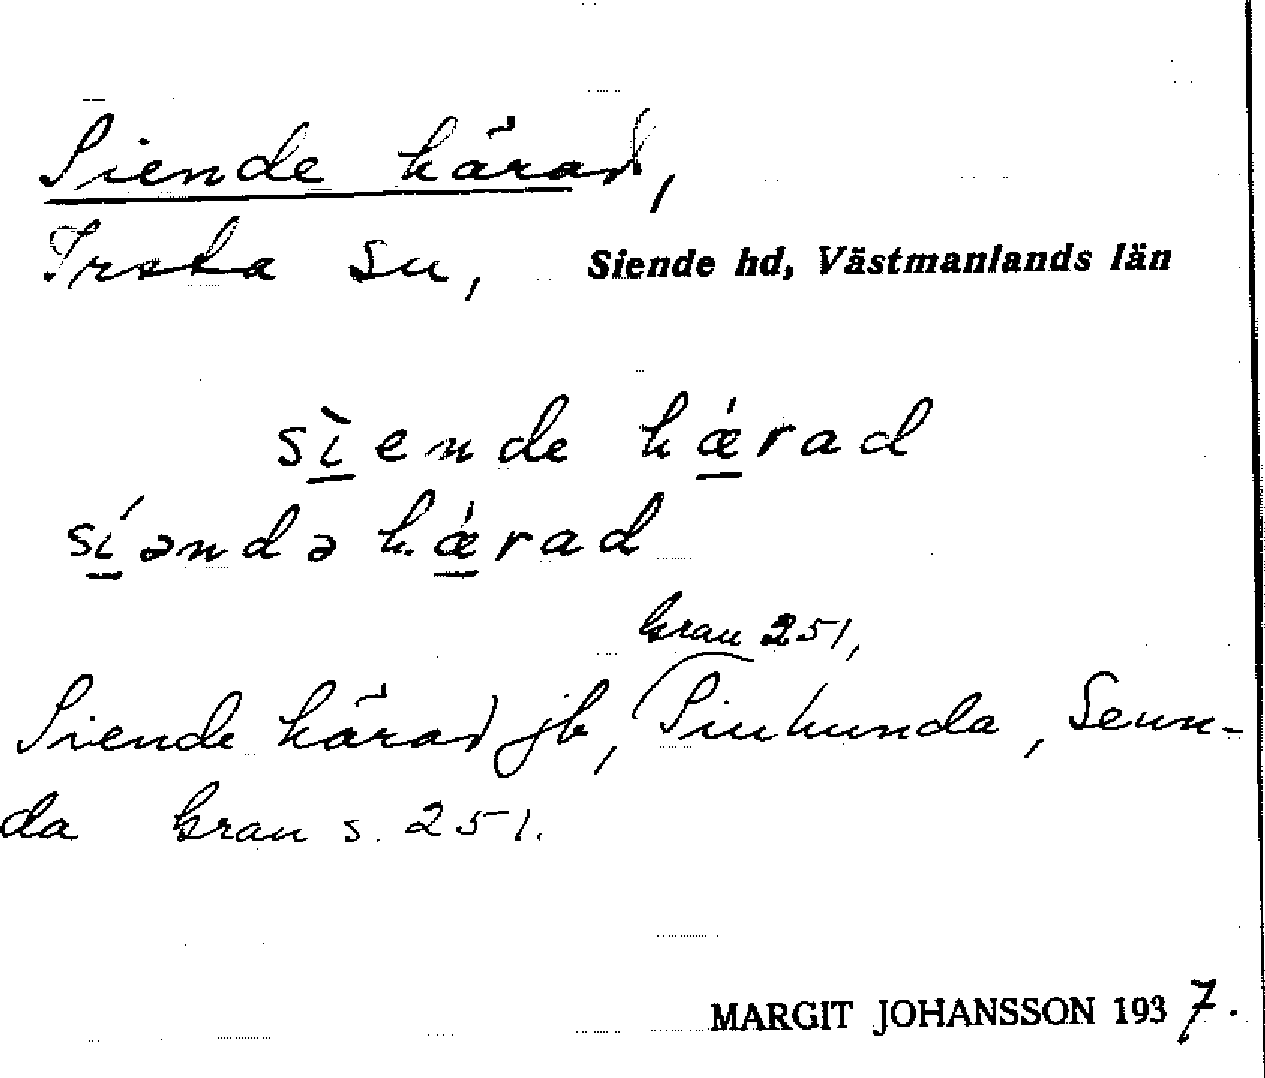 Siende härad,
Irsta sn, Siende hd, Västmanlands län
sìende hǽrad
síəndə hǽrad
Grau 251,
Siende härad jb, Sinhunda, Senn-
da Grau s. 251.
MARGIT JOHANSSON 1937.